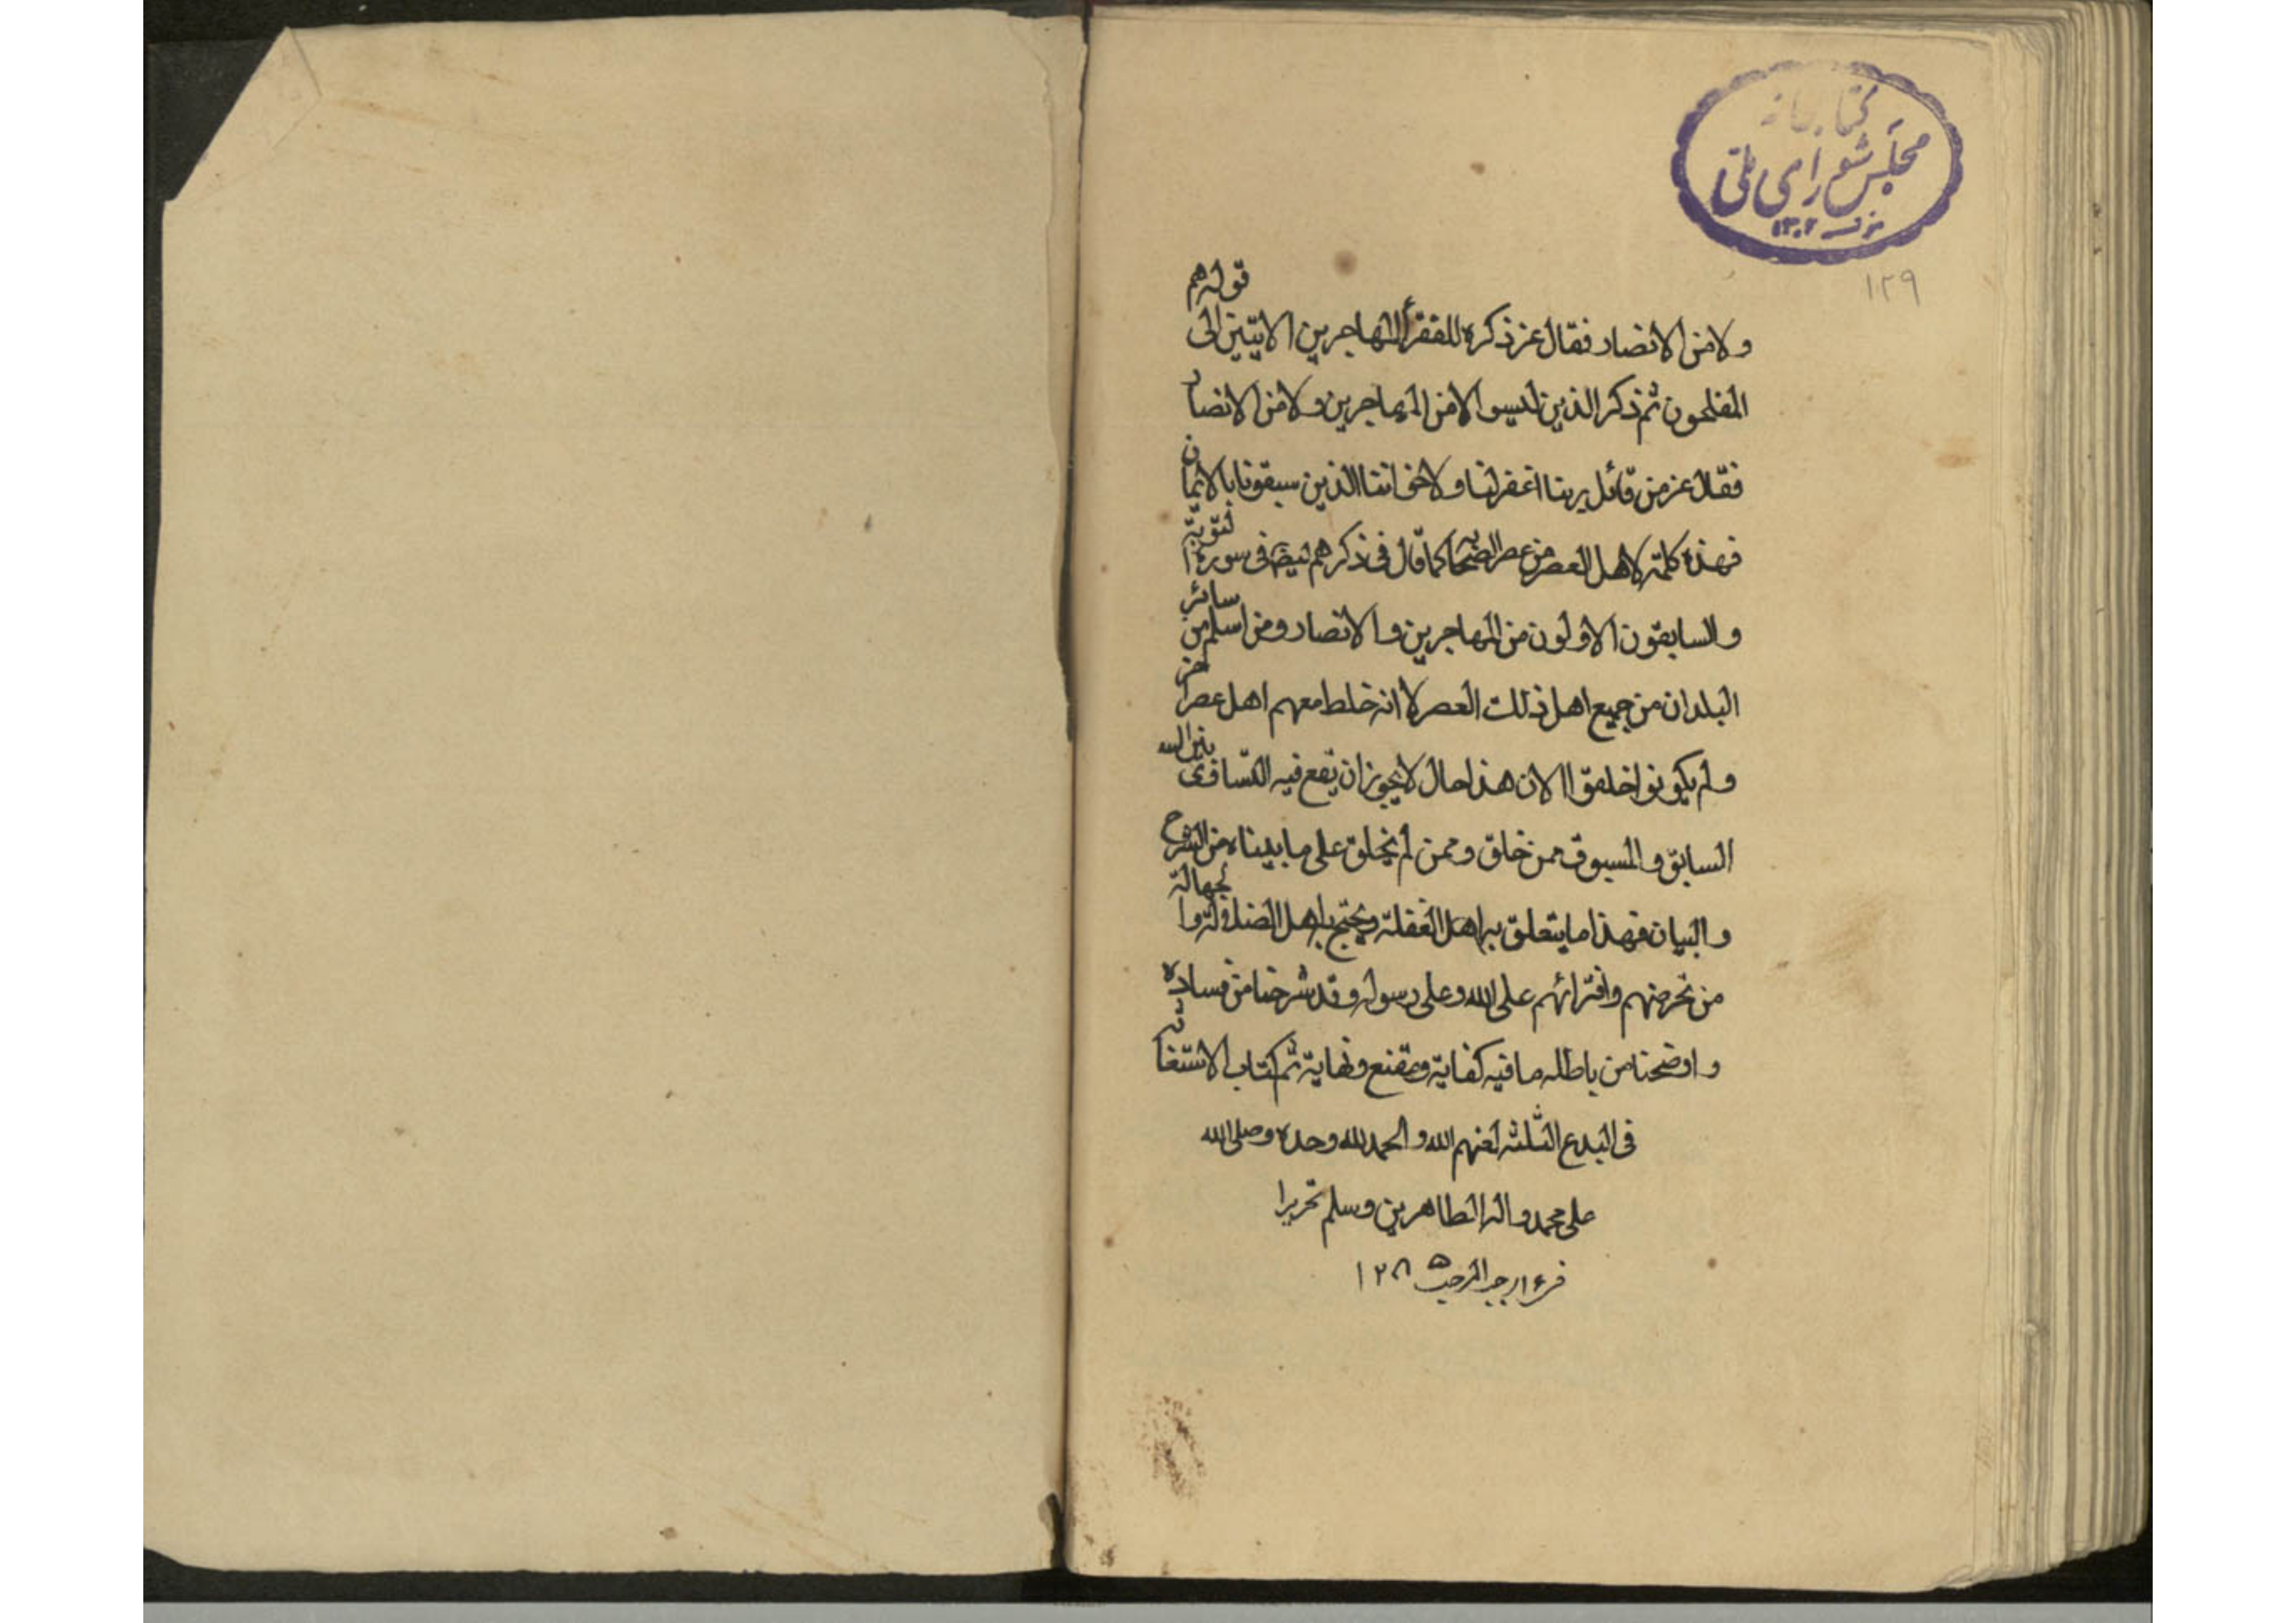 كتابخانه
مجلس شورای ملی
١٣٠٢
١٢٩
ولا من الانصار فقال عز ذكره للفقرأ المهاجرين الايتين الى قوله هم
المفلحون ثم ذكر الذين ليسوا لا من المهاجرين ولا من الانصار
فقال عز من قائل ربنا اغفر لنا ولاخواننا الذين سبقونا بالايمان
فهذه كلمة لاهل العصر من عصر الصحابة كما قال فى ذكرهم ايضا فى سورة التوبة
والسابقون الاولون من المهاجرين والانصار ومن اسلم من سائر
البلدان من جميع اهل ذلك العصر لا انه خلط معهم اهل عصر اخر
ولم يكونوا خلقوا الان هذا حال لا يجوز ان يقع فيه التساوى بين الله
السابق والمسبوق ممن خلق وممن لم يخلق على ما بيناه من الشرح
والبيان فهذا ما يتعلق به اهل الغفلة ويحتج به اهل الضلالة والجهالة
من تخرصهم وافترائهم على الله وعلى رسوله وقد شرحنا من فساده
واوضحنا من باطله ما فيه كفاية ومقنع ونهاية تم كتاب الاستغاثة
فى البدع الثلثه لعنهم الله والحمد لله وحده وصلى الله
على محمد واله الطاهرين وسلم تحريرا
رجب المرجب ١٢٨